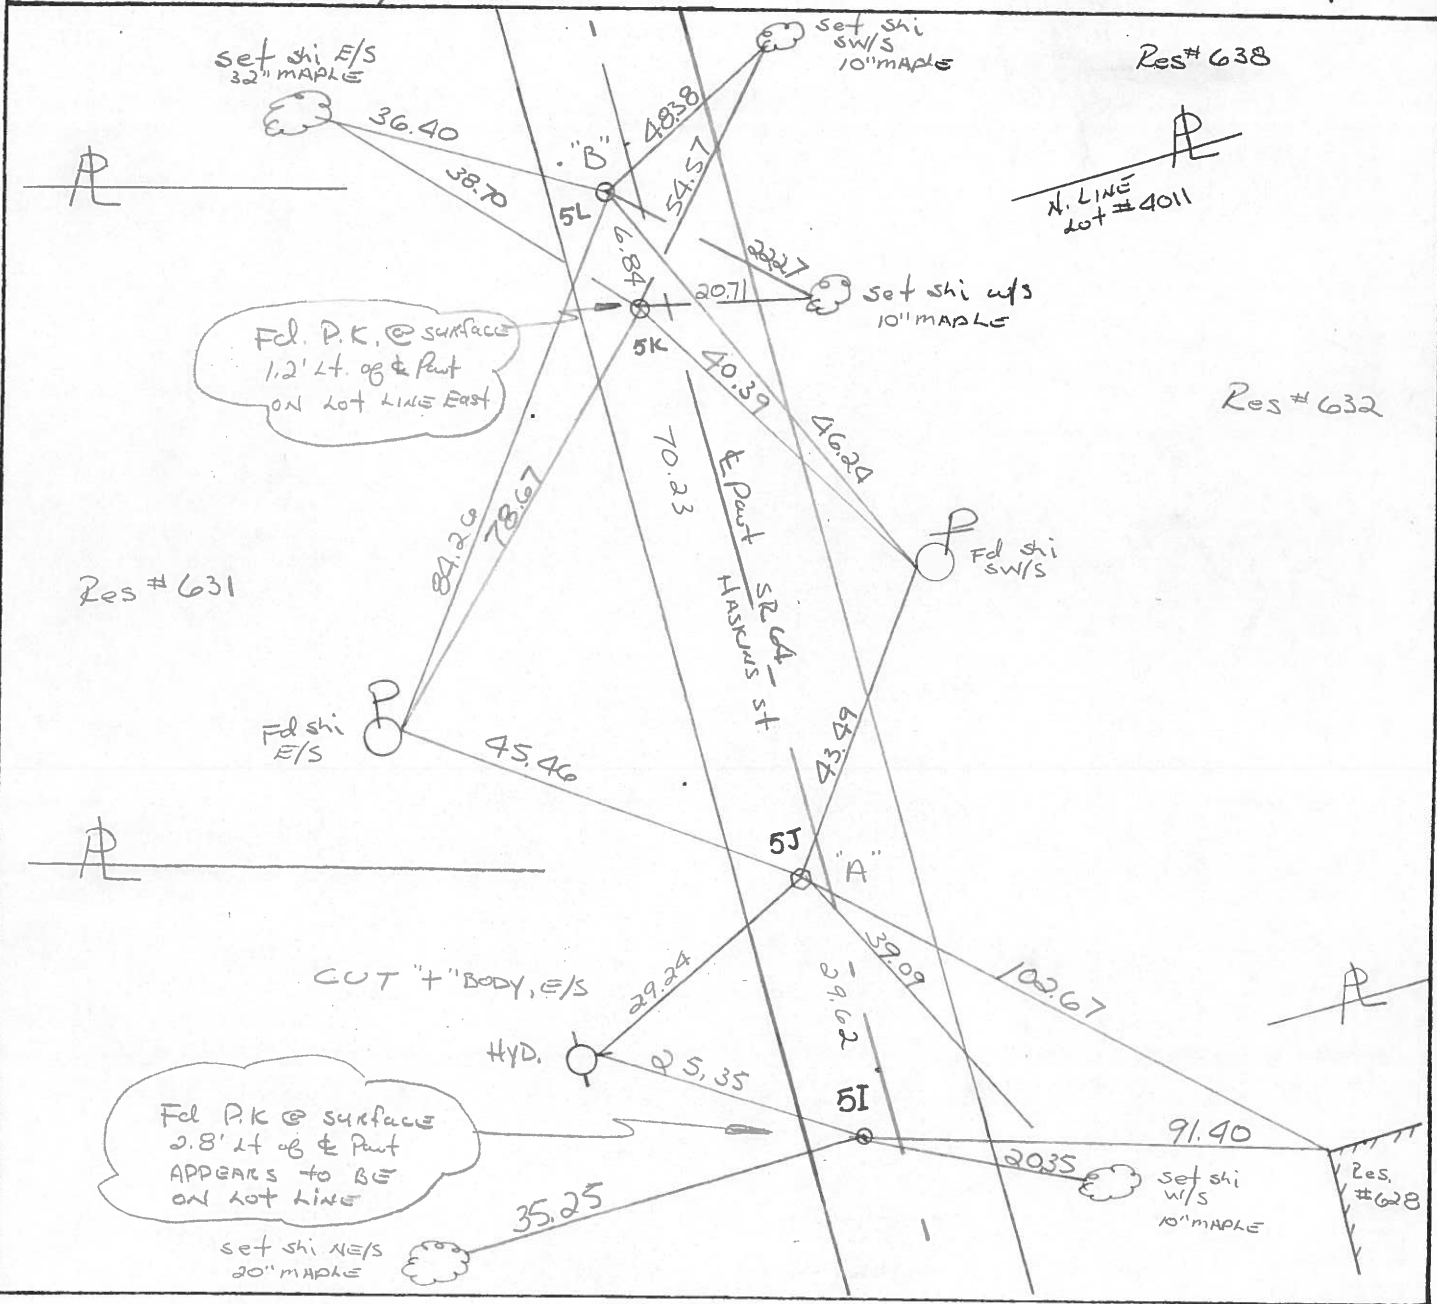 set shi E/S
32" MAPLE
set shi
SW/S
10" MAPLE
Res# 638
36.40
48.38
"B"
38.70
54.57
PL
PL
N. LINE
Lot # 4011
5L
6.84
22.27
20.71
set shi w/s
10" MAPLE
Fd. P.K. @ surface
1.2' Lt. of ℄ Pavt
ON Lot LINE East
5K
40.39
46.24
Res # 632
70.23
℄ Pavt
SR 64
HASKINS St
84.26
78.67
P
Fd shi
SW/S
Res # 631
P
Fd shi
E/S
45.46
43.49
PL
5J
"A"
CUT "+" BODY, E/S
29.24
39.09
102.67
PL
29.62
HYD.
25,35
5I
Fd P.K @ surface
2.8' Lt of ℄ Pavt
APPEARS to BE
ON Lot LINE
91.40
20.35
set shi
W/S
10" MAPLE
Res.
#628
35.25
set shi NE/S
20" MAPLE